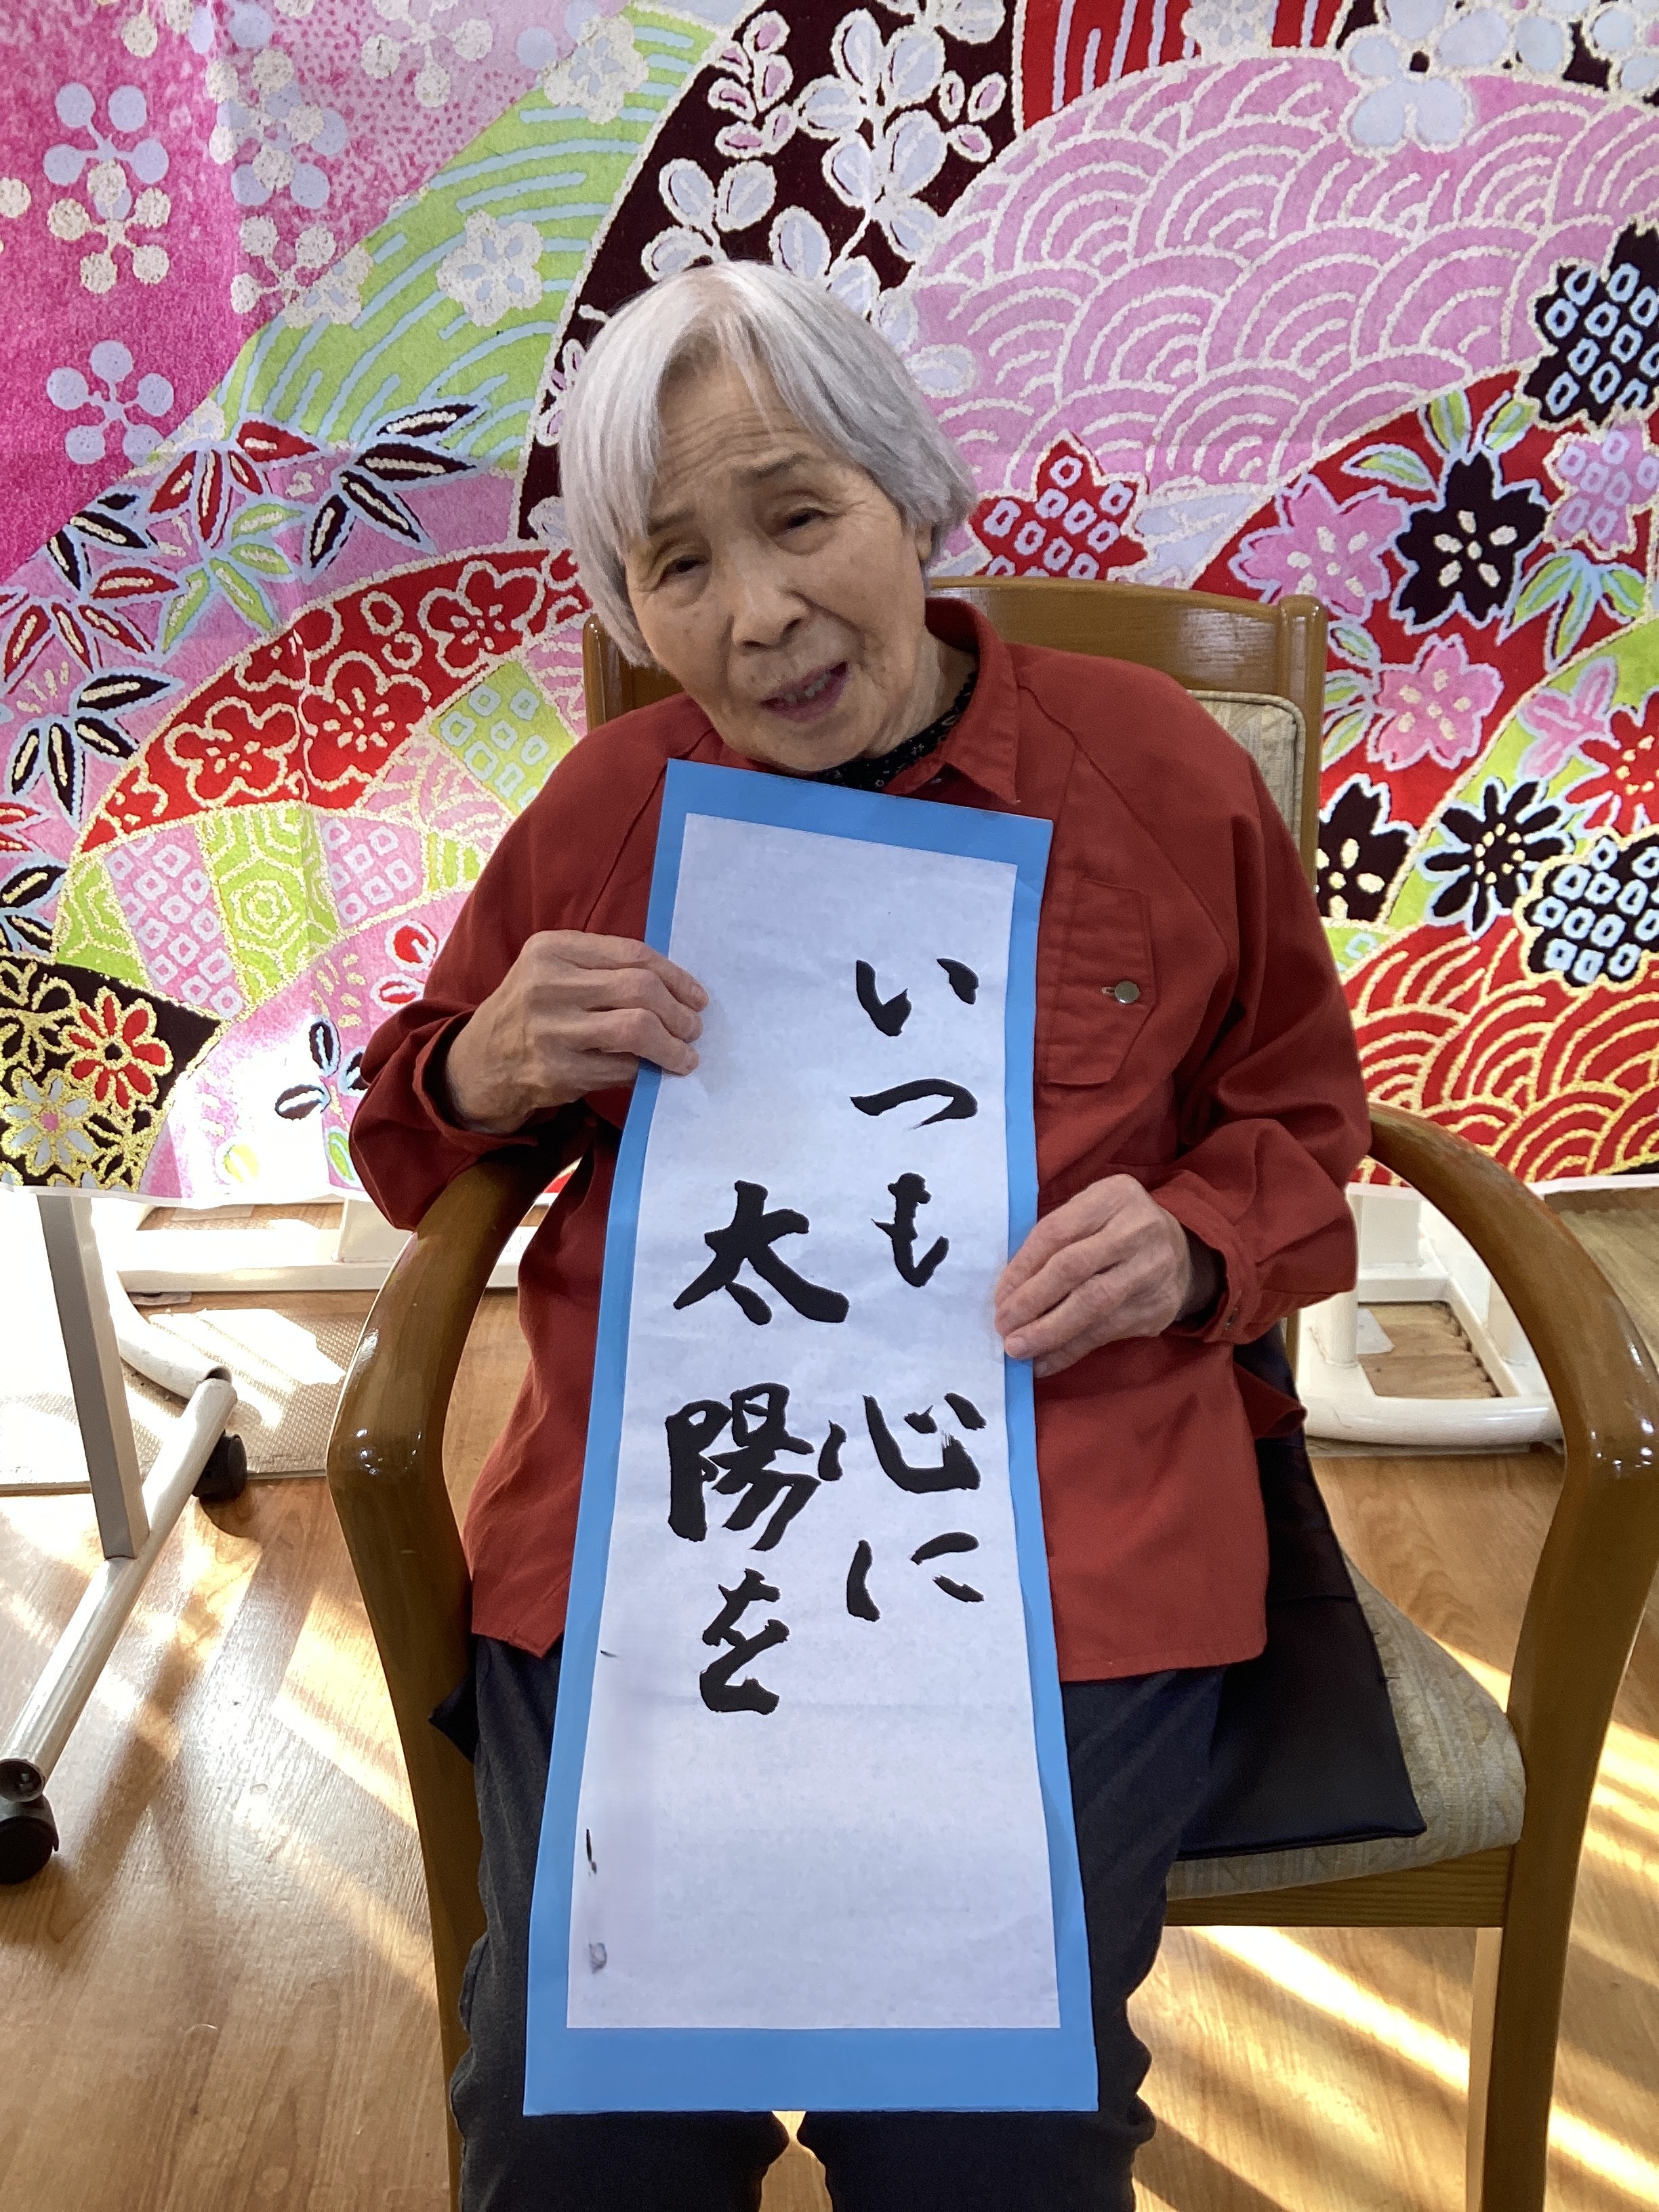 いつも心に
太陽を